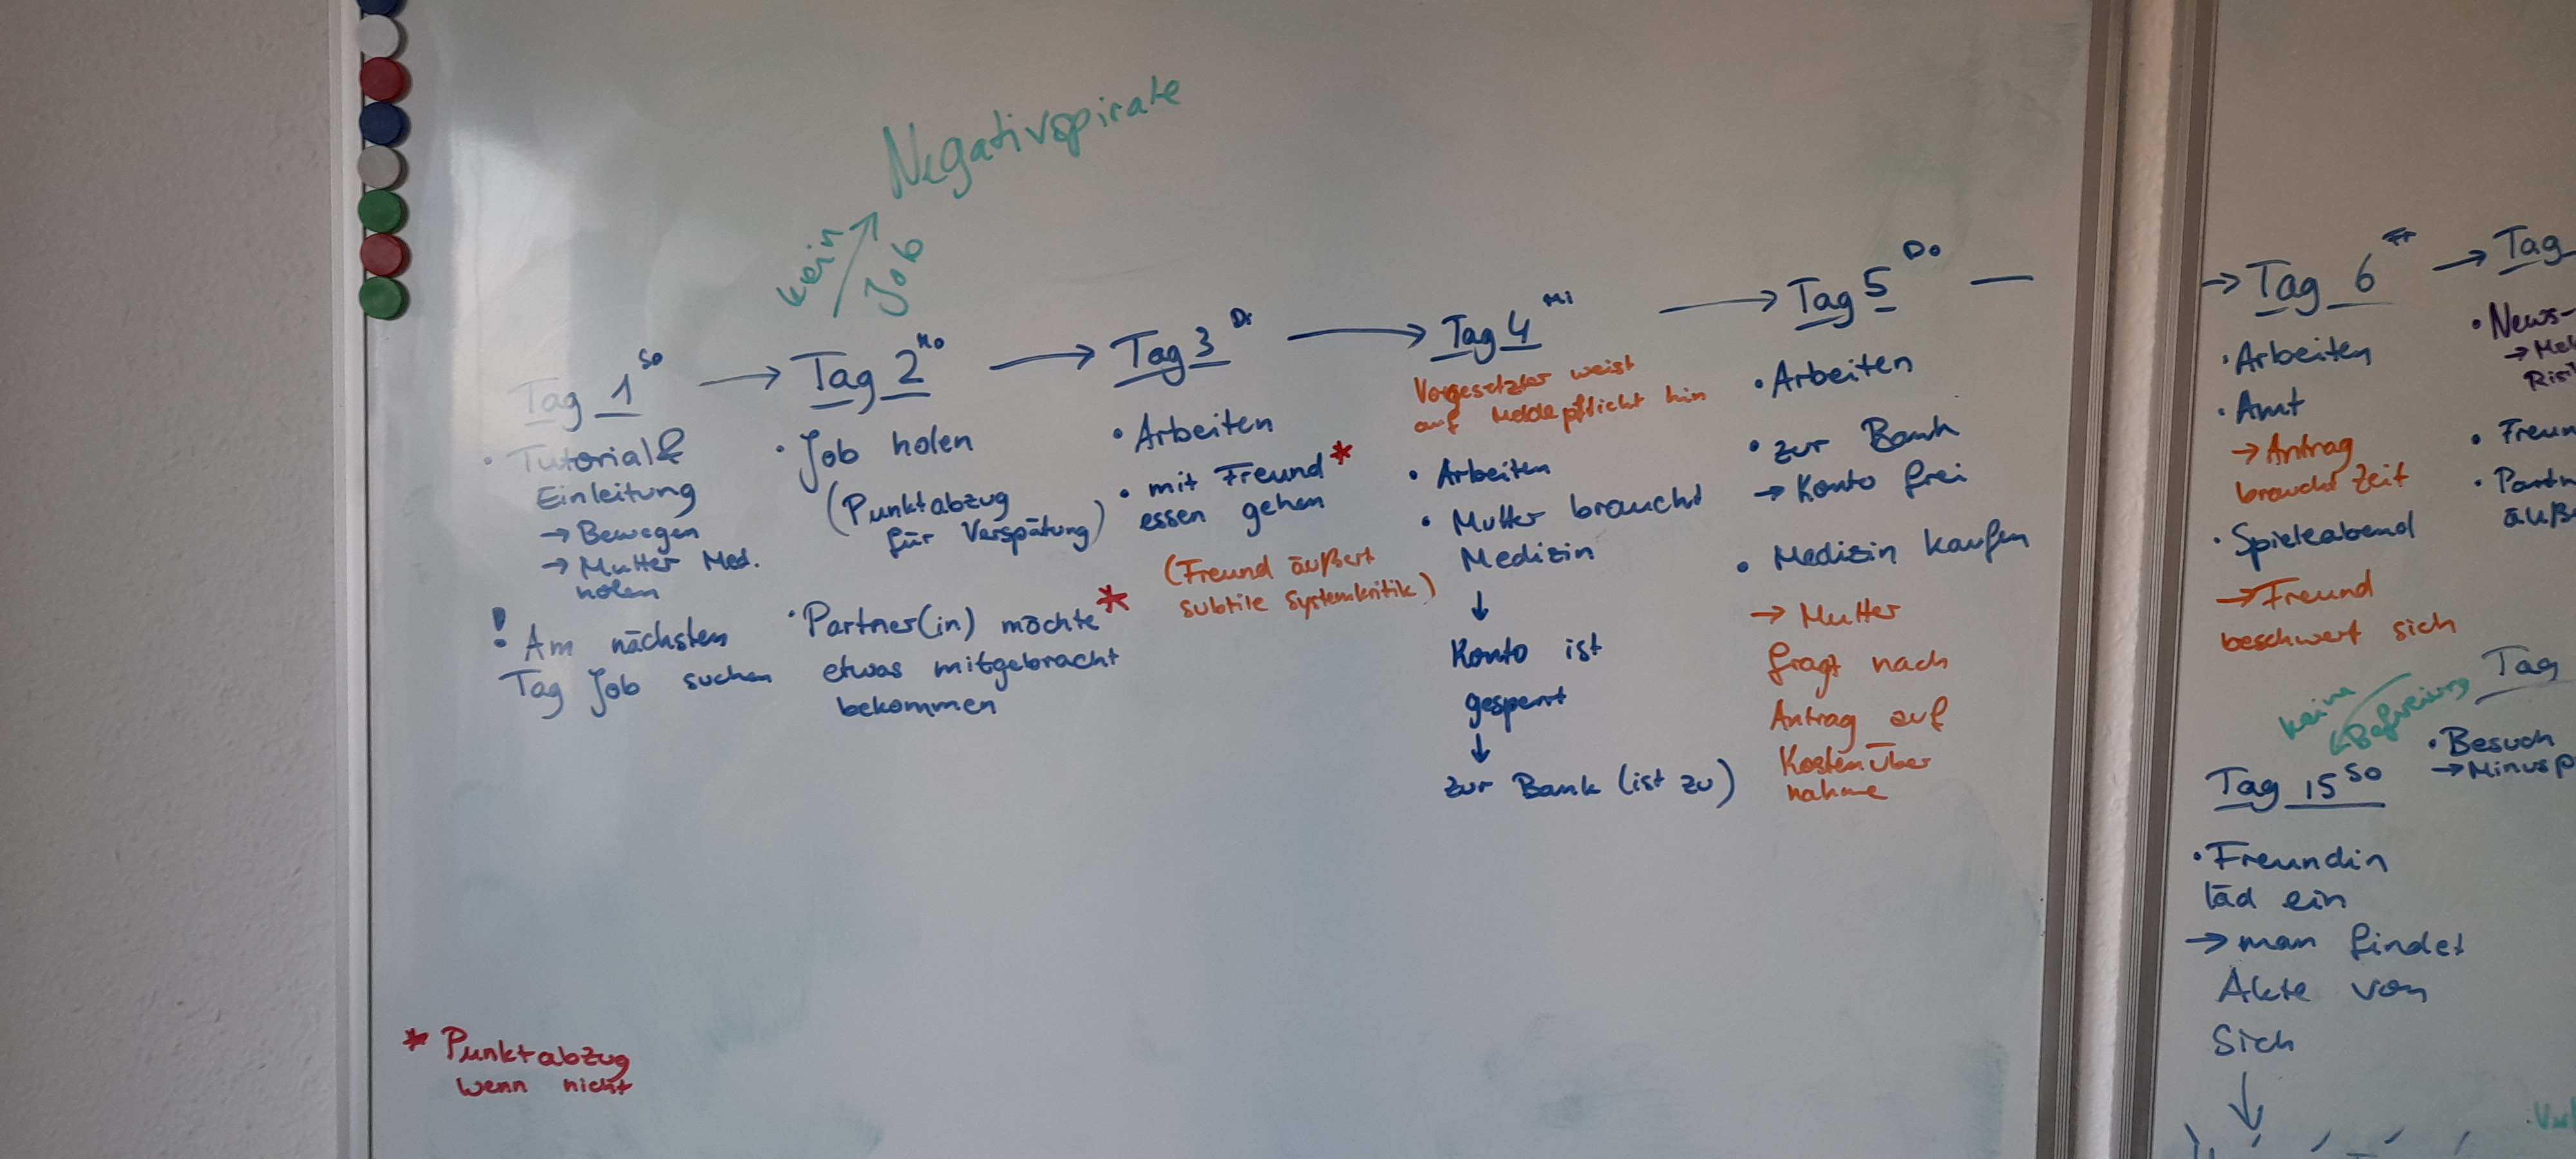 Negativspirale
kein
Job
Tag 1 So
Tutorial &
Einleitung
→ Bewegen
→ Mutter Med.
holen
! Am nächsten
Tag Job suchen
→ Tag 2 Mo
• Job holen
(Punktabzug
für Verspätung)
• Partner(in) möchte *
etwas mitgebracht
bekommen
→ Tag 3 Di
• Arbeiten
• mit Freund *
essen gehen
(Freund äußert
subtile Systemkritik)
→ Tag 4 Mi
Vorgesetzter weist
auf Meldepflicht hin
• Arbeiten
• Mutter braucht
Medizin
↓
Konto ist
gesperrt
↓
zur Bank (ist zu)
→ Tag 5 Do
• Arbeiten
• zur Bank
→ Konto frei
• Medizin kaufen
→ Mutter
fragt nach
Antrag auf
Kostenüber
nahme
* Punktabzug
wenn nicht
→ Tag 6 Fr
• Arbeiten
• Amt
→ Antrag
braucht Zeit
• Spieleabend
→ Freund
beschwert sich
→ Tag
• News-
Tag
• Besuch
keine
Befreiung
Tag 15 So
• Freundin
läd ein
→ man findet
Akte von
Sich
↓